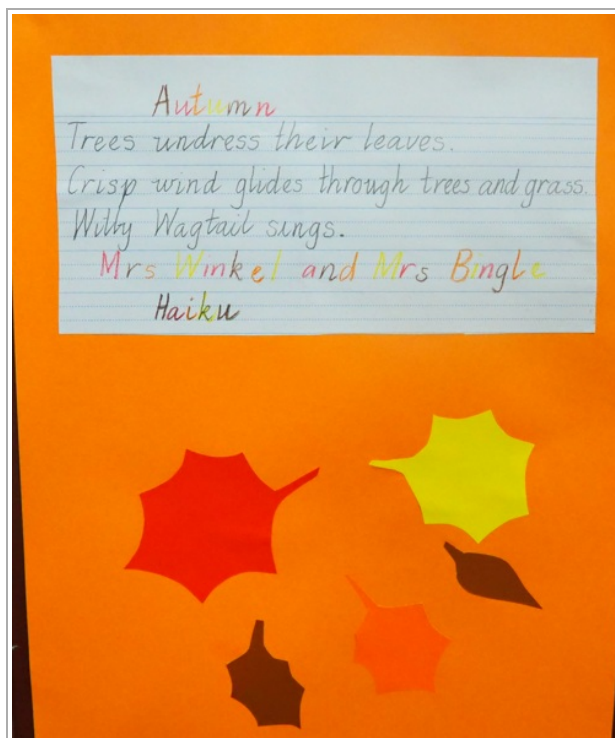 Autumn
Trees undress their leaves.
Crisp wind glides through trees and grass.
Willy Wagtail sings.
Mrs Winkel and Mrs Bingle
Haiku